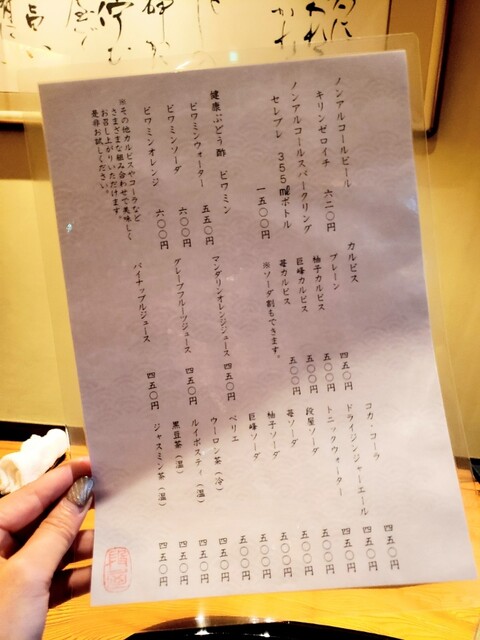 ノンアルコールビール
キリンゼロイチ 六二〇円
ノンアルコールスパークリング
セレブレ 355㎖ボトル
一五〇〇円
健康ぶどう酢 ビワミン
ビワミンウォーター 五五〇円
ビワミンソーダ 六〇〇円
ビワミンオレンジ 六〇〇円
※その他カルピスやコーラなど
さまざまな組み合わせで美味しく
お召し上がりいただけます。
是非お試しください。
カルピス
プレーン 四五〇円
柚子カルピス 五〇〇円
巨峰カルピス 五〇〇円
苺カルピス 五〇〇円
※ソーダ割もできます。
マンダリンオレンジジュース 四五〇円
グレープフルーツジュース 四五〇円
パイナップルジュース 四五〇円
コカ・コーラ 四五〇円
ドライジンジャーエール 四五〇円
トニックウォーター 四五〇円
段屋ソーダ 五〇〇円
苺ソーダ 五〇〇円
柚子ソーダ 五〇〇円
巨峰ソーダ 五〇〇円
ペリエ 五〇〇円
ウーロン茶(冷) 四五〇円
ルイボスティ(温) 四五〇円
黒豆茶(温) 四五〇円
ジャスミン茶(温) 四五〇円